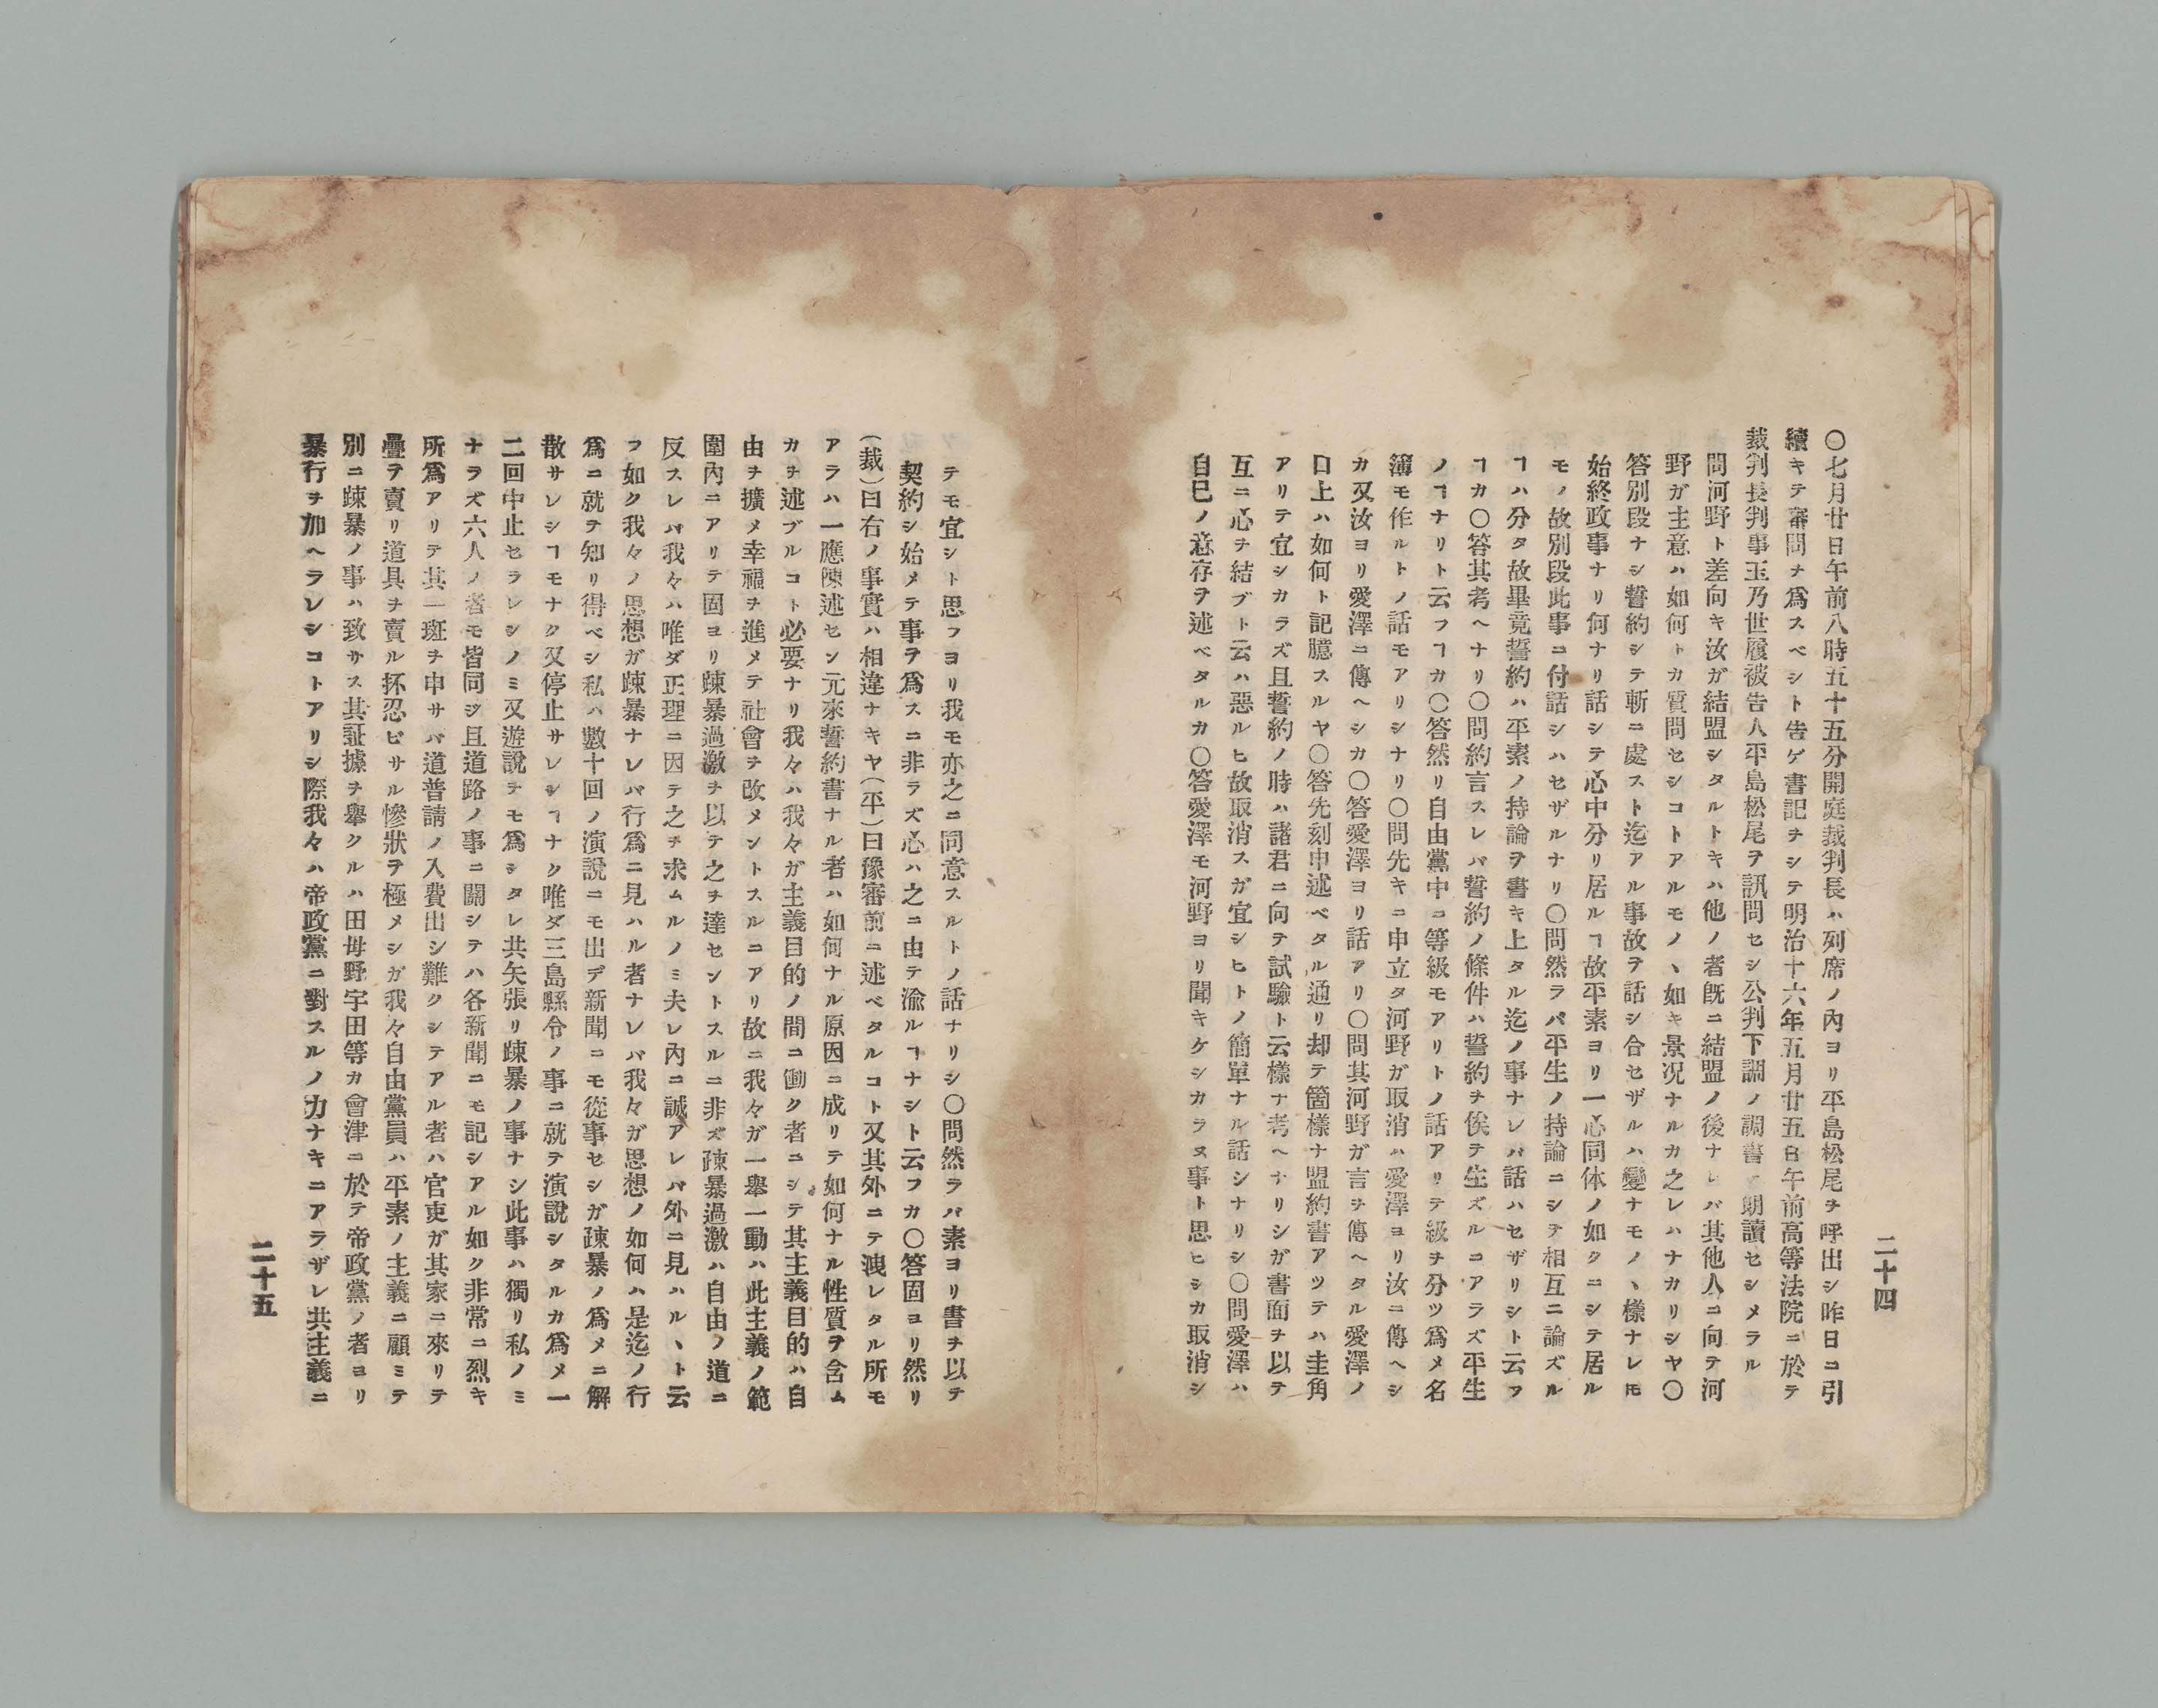 二十四
〇七月廿日午前八時五十五分開庭裁判長ハ列席ノ內ヨリ平島松尾ヲ呼出シ昨日ニ引
續キテ審問ヲ爲スベシト告ゲ書記ヲシテ明治十六年五月廿五日午前高等法院ニ於テ
裁判長判事玉乃世履被告人平島松尾ヲ訊問セシ公判下調ノ調書ヲ朗讀セシメラル
問河野ト差向キ汝ガ結盟シタルトキハ他ノ者既ニ結盟ノ後ナレバ其他人ニ向テ河
野ガ主意ハ如何トカ質問セシコトアルモノヽ如キ景况ナルカ之レハナカリシヤ〇
答別段ナシ誓約シテ斬ニ處スト迄アル事故ヲ話シ合セザルハ變ナモノヽ樣ナレㇳモ
始終政事ナリ何ナリ話シテ心中分リ居ルヿ故平素ヨリ一心同体ノ如クニシテ居ル
モノ故別段此事ニ付話シハセザルナリ〇問然ラバ平生ノ持論ニシテ相互ニ論ズル
ヿハ分タ故畢竟誓約ハ平素ノ持論ヲ書キ上タル迄ノ事ナレバ話ハセザリシト云フ
ヿカ〇答其考ヘナリ〇問約言スレバ誓約ノ條件ハ誓約ヲ俟テ生ズルニアラズ平生
ノヿナリト云フヿカ〇答然リ自由黨中ニ等級モアリトノ話アリテ級ヲ分ツ爲メ名
簿モ作ルトノ話モアリシナリ〇問先キニ申立タ河野ガ取消ハ愛澤ヨリ汝ニ傳ヘシ
カ又汝ヨリ愛澤ニ傳ヘシカ〇答愛澤ヨリ話アリ〇問其河野ガ言ヲ傳ヘタル愛澤ノ
口上ハ如何ト記臆スルヤ〇答先刻申述ベタル通リ却テ箇樣ナ盟約書アツテハ圭角
アリテ宜シカラズ且誓約ノ時ハ諸君ニ向テ試驗ト云樣ナ考ヘナリシガ書面ヲ以テ
互ニ心ヲ結ブト云ハ惡ルヒ故取消スガ宜シヒトノ簡單ナル話シナリシ〇問愛澤ハ
自已ノ意存ヲ述ベタルカ〇答愛澤モ河野ヨリ聞キケシカラヌ事ト思ヒシカ取消シ
テモ宜シト思フヨリ我モ亦之ニ同意スルトノ話ナリシ〇問然ラバ素ヨリ書ヲ以テ
契約シ始メテ事ヲ爲スニ非ラズ心ハ之ニ由テ渝ルヿナシト云フカ〇答固ヨリ然リ
(裁)曰右ノ事實ハ相違ナキヤ(平)曰豫審前ニ述ベタルコト又其外ニテ洩レタル所モ
アラハ一應陳述セン元來誓約書ナル者ハ如何ナル原因ニ成リテ如何ナル性質ヲ含ム
カヲ述ブルコト必要ナリ我々ハ我々ガ主義目的ノ間ニ働ク者ニシテ其主義目的ハ自
由ヲ擴メ幸福ヲ進メテ社會ヲ改メントスルニアリ故ニ我々ガ一舉一動ハ此主義ノ範
圍內ニアリテ固ヨリ疎暴過激ヲ以テ之ヲ達セントスルニ非ズ疎暴過激ハ自由ノ道ニ
反スレバ我々ハ唯ダ正理ニ因テ之ヲ求ムルノミ夫レ內ニ誠アレバ外ニ見ハルヽト云
フ如ク我々ノ思想ガ疎暴ナレバ行爲ニ見ハル者ナレバ我々ガ思想ノ如何ハ是迄ノ行
爲ニ就テ知リ得ベシ私ハ數十回ノ演說ニモ出デ新聞ニモ從事セシガ疎暴ノ爲メニ解
散サレシヿモナク又停止サレシヿナク唯ダ三島縣令ノ事ニ就テ演說シタルカ爲メ一
二回中止セラレシノミ又遊說ヲモ爲シタレ共矢張リ疎暴ノ事ナシ此事ハ獨リ私ノミ
ナラズ六人ノ者モ皆同ジ且道路ノ事ニ關シテハ各新聞ニモ記シアル如ク非常ニ烈キ
所爲アリテ其一斑ヲ申サバ道普請ノ入費出シ難クシテアル者ハ官吏ガ其家ニ來リテ
疊ヲ賣リ道具ヲ賣ル抔忍ビサル慘狀ヲ極メシガ我々自由黨員ハ平素ノ主義ニ顧ミテ
別ニ疎暴ノ事ハ致サス其証據ヲ舉クルハ田母野宇田等カ會津ニ於テ帝政黨ノ者ヨリ
暴行ヲ加ヘラレシコトアリシ際我々ハ帝政黨ニ對スルノ力ナキニアラザレ共主義ニ
二十五